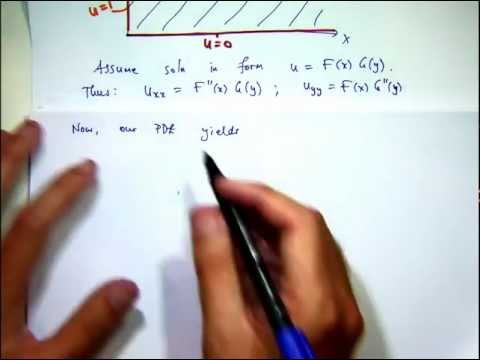 u=1
u=0
x
Assume soln in form u = F(x) G(y).
Thus: uxx = F"(x) G(y) ; uyy = F(x) G"(y)
Now, our PDE yields